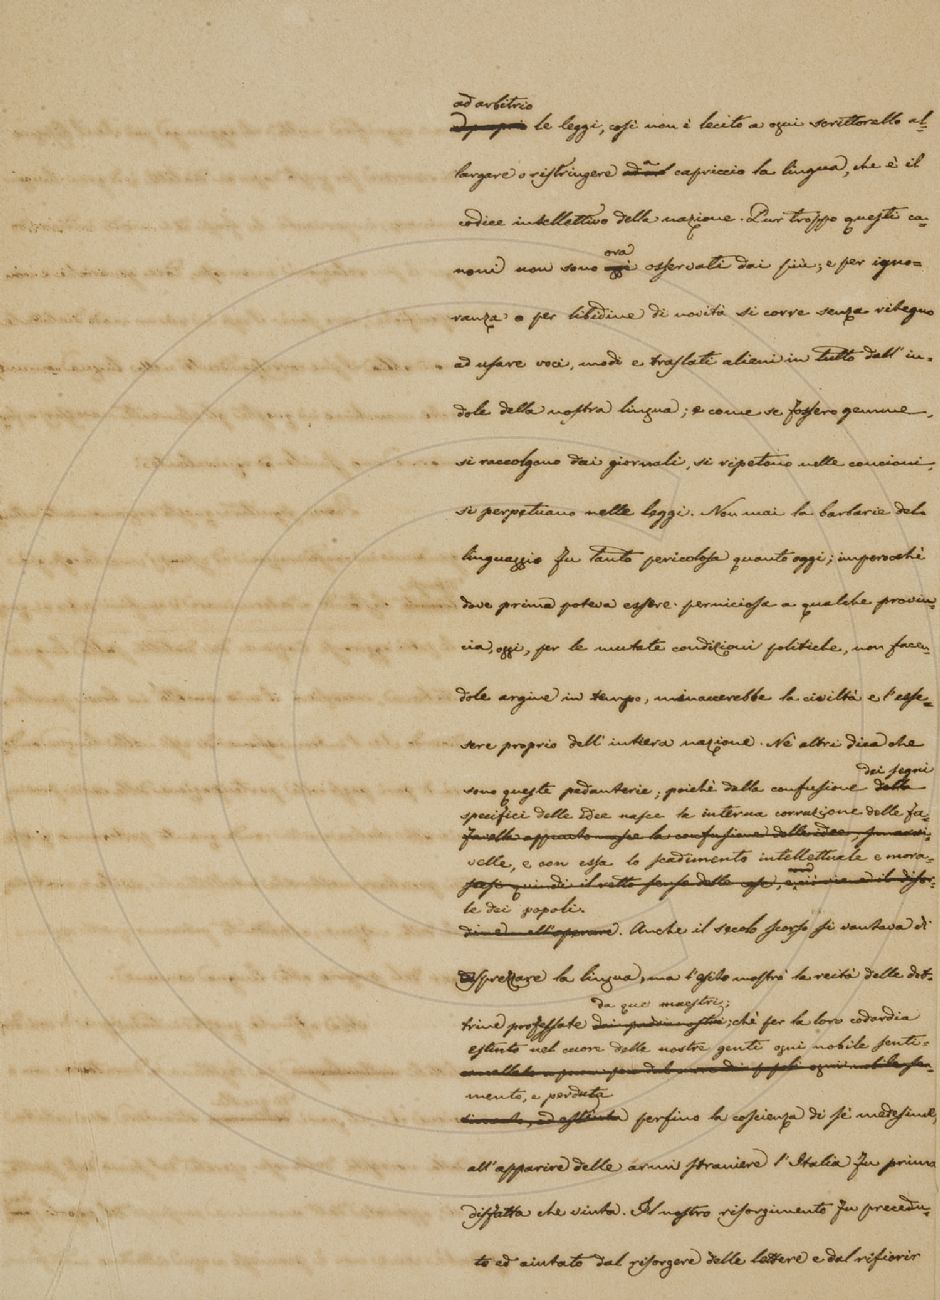 ad arbitrio
le leggi, così non è lecito a ogni scrittorello al-
largare o ristringere a capriccio la lingua, che è il
codice intellettivo della nazione. Pur troppo questi ca-
noni non sono oggi osservati dai più; e per igno-
ora
ranza o per libidine di novità si corre senza ritegno
ad usare voci, modi e traslati alieni in tutto dall' in-
dole della nostra lingua; e come se fossero gemme,
si raccolgono dai giornali, si ripetono nelle concioni,
si perpetuano nelle leggi. Non mai la barbarie del
linguaggio fu tanto pericolosa quanto oggi; imperocchè
dove prima poteva essere perniciosa a qualche provin-
cia, oggi, per le mutate condizioni politiche, non facen-
dole argine in tempo, minaccerebbe la civiltà e l'esse-
sere proprio dell' intiera nazione. Nè altri dica che
dei segni
sono queste pedanterie; poichè dalla confusione della
specifici delle idee nasce la interna corruzione delle fa-
favella appunto nasce la confusione delle idee,
velle, e con essa lo scadimento intellettuale e mora-
quindi il retto senso delle cose, e il disor-
le dei popoli.
dine nell'operare. Anche il secolo scorso si vantava di
disprezzare la lingua, ma l'esito mostrò la reità delle dot-
da que' maestri;
trine professate ; chè per la loro codardia
estinto nel cuore delle nostre genti ogni nobile senti-
dal cuore di popoli ogni nobile sen-
mento, e perduta
timento, ed estinta perfino la coscienza di sè medesime,
all'apparire delle armi straniere l'Italia fu prima
disfatta che vinta. Il nostro risorgimento fu precedu-
to ed aiutato dal risorgere delle lettere e dal rifiorir